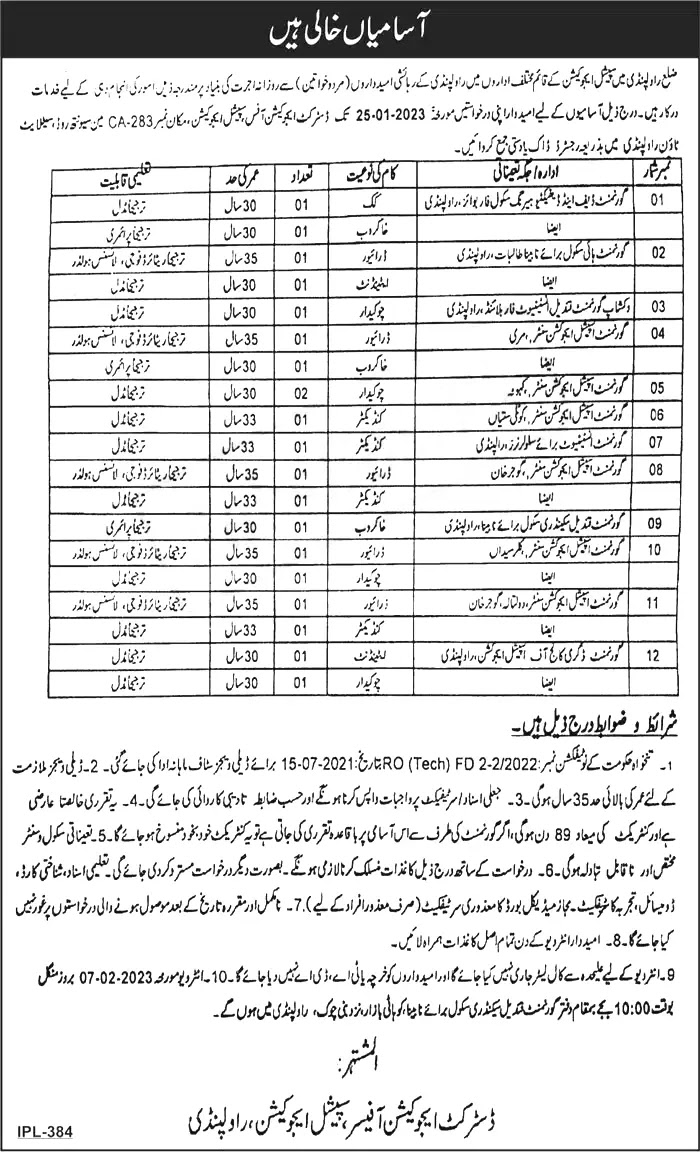 آسامیاں خالی ہیں
ضلع راولپنڈی میں سپیشل ایجوکیشن کے قائم مختلف اداروں میں راولپنڈی کے رہائشی امیدواروں (مرد و خواتین) سے روزانہ اجرت کی بنیاد پر مندرجہ ذیل امور کی انجام دہی کے لیے خدمات
درکار ہیں۔ درج ذیل آسامیوں کے لیے امیدوار اپنی درخواستیں مورخہ 25-01-2023 تک ڈسٹرکٹ ایجوکیشن آفس، سپیشل ایجوکیشن، مکان نمبر CA-283 مین سیونتھ روڈ، سیٹلائیٹ
ٹاؤن راولپنڈی میں بذریعہ رجسٹرڈ ڈاک یا دستی جمع کروائیں۔
نمبر شمار ادارہ / جگہ تعیناتی کام کی نوعیت تعداد عمر کی حد تعلیمی قابلیت
01 گورنمنٹ ڈیف اینڈ ڈیفیکٹیو ہیرنگ سکول فار بوائز، راولپنڈی کک 01 30 سال ترجیحاً مڈل
ایضا خاکروب 01 30 سال ترجیحاً پرائمری
02 گورنمنٹ ہائی سکول برائے نابینا طالبات، راولپنڈی ڈرائیور 01 35 سال ترجیحاً ریٹائرڈ فوجی، لائسنس ہولڈر
ایضا اٹینڈنٹ 01 30 سال ترجیحاً مڈل
03 ورکشاپ گورنمنٹ قندیل انسٹیٹیوٹ فار بلائنڈ، راولپنڈی چوکیدار 01 30 سال ترجیحاً مڈل
04 گورنمنٹ اسپیشل ایجوکیشن سنٹر، مری ڈرائیور 01 35 سال ترجیحاً ریٹائرڈ فوجی، لائسنس ہولڈر
ایضا خاکروب 01 30 سال ترجیحاً پرائمری
05 گورنمنٹ اسپیشل ایجوکیشن سنٹر، کہوٹہ چوکیدار 02 30 سال ترجیحاً مڈل
06 گورنمنٹ اسپیشل ایجوکیشن سنٹر، کوٹلی ستیاں کنڈیکٹر 01 33 سال ترجیحاً مڈل
07 گورنمنٹ انسٹیٹیوٹ برائے سلو لرنرز، راولپنڈی کنڈیکٹر 01 33 سال ترجیحاً مڈل
08 گورنمنٹ اسپیشل ایجوکیشن سنٹر، گوجر خان ڈرائیور 01 35 سال ترجیحاً ریٹائرڈ فوجی، لائسنس ہولڈر
ایضا کنڈیکٹر 01 33 سال ترجیحاً مڈل
09 گورنمنٹ قندیل سیکنڈری سکول برائے نابینا، راولپنڈی خاکروب 01 30 سال ترجیحاً پرائمری
10 گورنمنٹ اسپیشل ایجوکیشن سنٹر، کلر سیداں ڈرائیور 01 35 سال ترجیحاً ریٹائرڈ فوجی، لائسنس ہولڈر
ایضا چوکیدار 01 30 سال ترجیحاً مڈل
11 گورنمنٹ اسپیشل ایجوکیشن سنٹر، دولتالہ، گوجر خان ڈرائیور 01 35 سال ترجیحاً ریٹائرڈ فوجی، لائسنس ہولڈر
ایضا کنڈیکٹر 01 33 سال ترجیحاً مڈل
12 گورنمنٹ ڈگری کالج آف اسپیشل ایجوکیشن، راولپنڈی اٹینڈنٹ 01 30 سال ترجیحاً مڈل
ایضا چوکیدار 01 30 سال ترجیحاً مڈل
شرائط و ضوابط درج ذیل ہیں۔
1۔ تنخواہ حکومت کے نوٹیفکیشن نمبر: RO (Tech) FD 2-2/2022 بتاریخ: 15-07-2021 برائے ڈیلی ویجز سٹاف ماہانہ ادا کی جائے گی۔ 2۔ ڈیلی ویجز ملازمت
کے لئے عمر کی بالائی حد 35 سال ہوگی۔ 3۔ جعلی اسناد / سرٹیفکیٹ پر واجبات واپس کرنا ہونگے اور حسب ضابطہ تادیبی کاروائی کی جائے گی۔ 4۔ یہ تقرری خالصتاً عارضی
ہے اور کنٹریکٹ کی میعاد 89 دن ہوگی، اگر گورنمنٹ کی طرف سے اس آسامی پر باقاعدہ تقرری کی جاتی ہے تو یہ کنٹریکٹ خود بخود منسوخ ہو جائے گا۔ 5۔ تعیناتی سکول و سنٹر
مختص اور ناقابل تبادلہ ہوگی۔ 6۔ درخواست کے ساتھ درج ذیل کاغذات منسلک کرنا لازمی ہونگے۔ بصورت دیگر درخواست مسترد کر دی جائے گی۔ تعلیمی اسناد، شناختی کارڈ،
ڈومیسائل، تجربہ کا سرٹیفکیٹ۔ مجاز میڈیکل بورڈ کا معذوری سرٹیفکیٹ (صرف معذور افراد کے لیے)۔ 7۔ نامکمل اور مقررہ تاریخ کے بعد موصول ہونے والی درخواستوں پر غور نہیں
کیا جائے گا۔ 8۔ امیدوار انٹرویو کے دن تمام اصل کاغذات ہمراہ لائیں۔
9۔ انٹرویو کے لیے علیحدہ سے کال لیٹر جاری نہیں کیا جائے گا اور امیدواروں کو خرچہ یا ٹی اے، ڈی اے نہیں دیا جائے گا۔ 10۔ انٹرویو مورخہ 07-02-2023 بروز منگل
بوقت 10:00 بجے بمقام دفتر گورنمنٹ قندیل سیکنڈری سکول برائے نابینا، کوہاٹی بازار، نزد بنی چوک، راولپنڈی میں ہوں گے۔
المشتہر:
ڈسٹرکٹ ایجوکیشن آفیسر، سپیشل ایجوکیشن، راولپنڈی
IPL-384